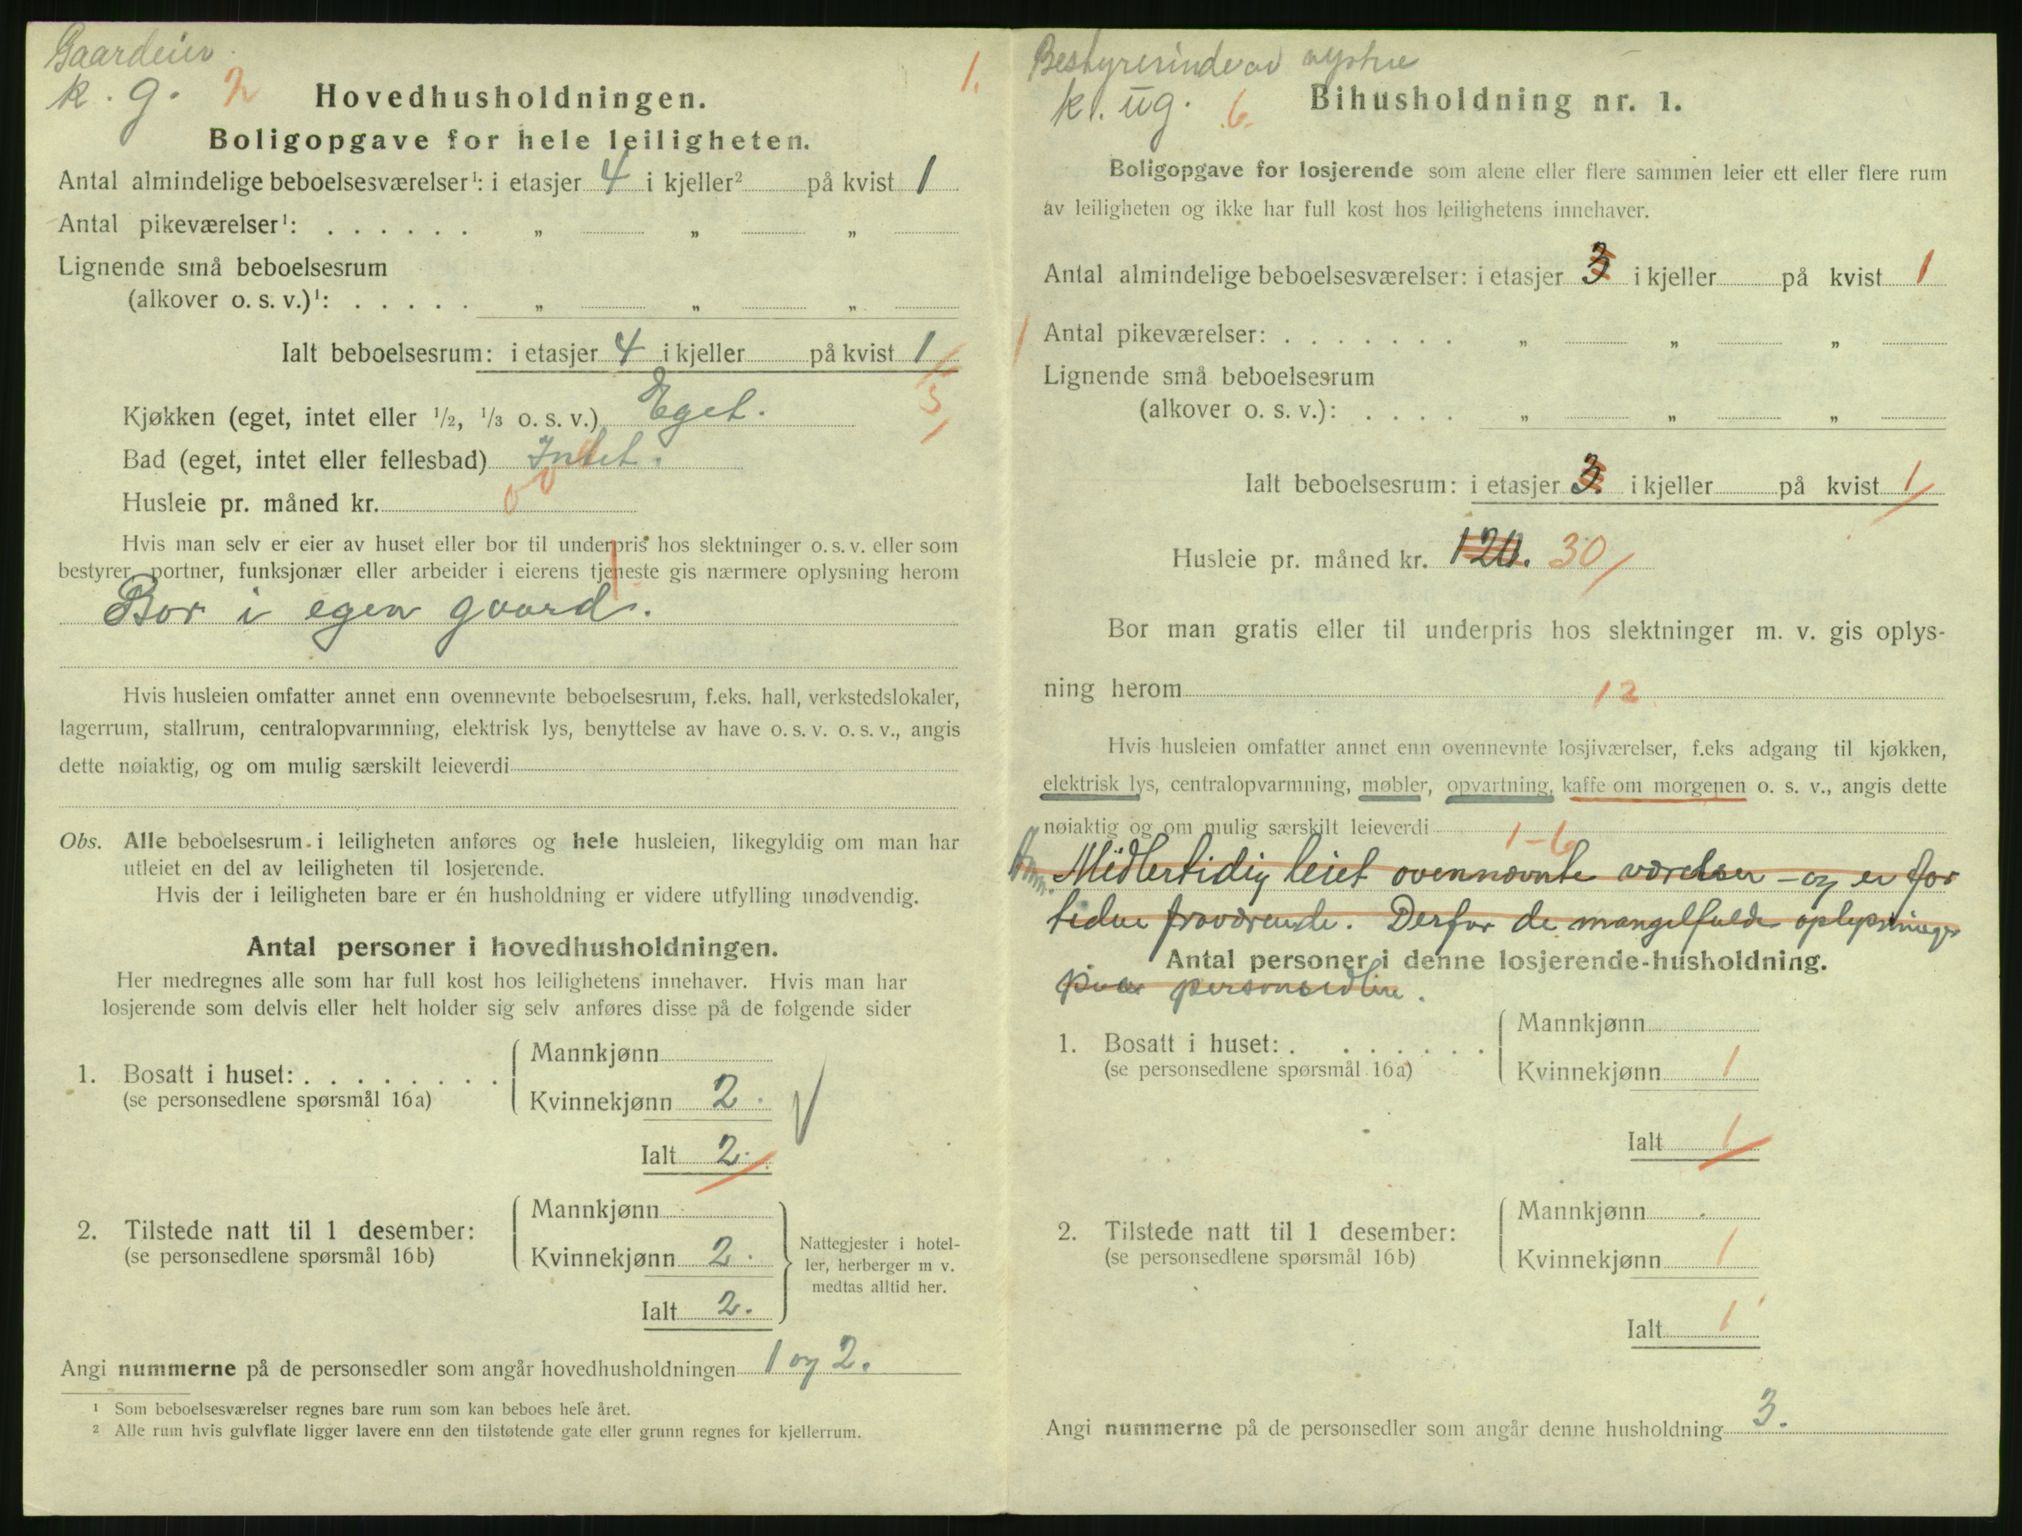 Gaardeier
k. g. 2
1.
Hovedhusholdningen.
Boligopgave for hele leiligheten.
Antal almindelige beboelsesværelser¹: i etasjer 4 i kjeller² på kvist 1
Antal pikeværelser¹: . . . . . . „ „ „
Lignende små beboelsesrum
(alkover o. s. v.)¹: . . . . . „ „ „
Ialt beboelsesrum: i etasjer 4 i kjeller på kvist 1
Kjøkken (eget, intet eller 1/2, 1/3 o. s. v.) Eget.
Bad (eget, intet eller fellesbad) Intet.
Husleie pr. måned kr.
Hvis man selv er eier av huset eller bor til underpris hos slektninger o. s. v. eller som
bestyrer, portner, funksjonær eller arbeider i eierens tjeneste gis nærmere oplysning herom
Bor i egen gaard.
Hvis husleien omfatter annet enn ovennevnte beboelsesrum, f.eks. hall, verkstedslokaler,
lagerrum, stallrum, centralopvarmning, elektrisk lys, benyttelse av have o. s. v. o. s. v., angis
dette nøiaktig, og om mulig særskilt leieverdi
Obs. Alle beboelsesrum i leiligheten anføres og hele husleien, likegyldig om man har
utleiet en del av leiligheten til losjerende.
Hvis der i leiligheten bare er én husholdning er videre utfylling unødvendig.
Antal personer i hovedhusholdningen.
Her medregnes alle som har full kost hos leilighetens innehaver. Hvis man har
losjerende som delvis eller helt holder sig selv anføres disse på de følgende sider
1. Bosatt i huset: . . . . . . . .
(se personsedlene spørsmål 16a)
Mannkjønn
Kvinnekjønn 2.
Ialt 2.
2. Tilstede natt til 1 desember:
(se personsedlene spørsmål 16b)
Mannkjønn
Kvinnekjønn 2.
Ialt 2.
Nattegjester i hotel-
ler, herberger m v.
medtas alltid her.
Angi nummerne på de personsedler som angår hovedhusholdningen 1 og 2.
¹ Som beboelsesværelser regnes bare rum som kan beboes hele året.
² Alle rum hvis gulvflate ligger lavere enn den tilstøtende gate eller grunn regnes for kjellerrum.
Bestyrerinde av systue
k. ug. 6.
Bihusholdning nr. 1.
Boligopgave for losjerende som alene eller flere sammen leier ett eller flere rum
av leiligheten og ikke har full kost hos leilighetens innehaver.
Antal almindelige beboelsesværelser: i etasjer 3 i kjeller på kvist 1
1 Antal pikeværelser: . . . . . . . „ „ „
Lignende små beboelsesrum
(alkover o. s. v.): . . . . „ „ „
Ialt beboelsesrum: i etasjer 3. i kjeller på kvist 1
Husleie pr. måned kr. 120. 30
Bor man gratis eller til underpris hos slektninger m. v. gis oplys-
ning herom 12
Hvis husleien omfatter annet enn ovennevnte losjiværelser, f.eks adgang til kjøkken,
elektrisk lys, centralopvarmning, møbler, opvartning, kaffe om morgenen o. s. v., angis dette
nøiaktig og om mulig særskilt leieverdi 1-6
Anm. Midlertidig leiet ovennævnte værelser - og er for
tiden fraværende. Derfor de mangelfulde oplysninger
paa personsedlene.
Antal personer i denne losjerende-husholdning.
1. Bosatt i huset: . . . . . . .
(se personsedlene spørsmål 16a)
Mannkjønn
Kvinnekjønn 1
Ialt 1
2. Tilstede natt til 1 desember:
(se personsedlene spørsmål 16b)
Mannkjønn
Kvinnekjønn 1
Ialt 1
Angi nummerne på de personsedler som angår denne husholdning 3.